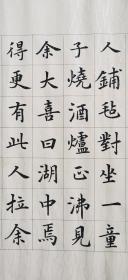 人鋪毡對坐一童
子燒酒爐正沸見
余大喜曰湖中焉
得更有此人拉余